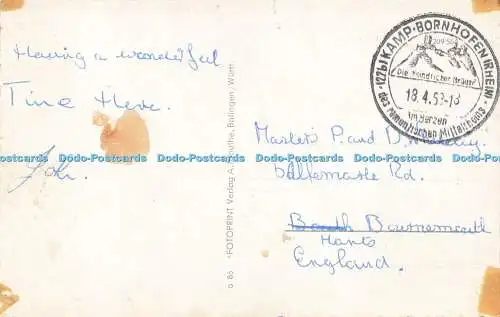 Having a wonderful
Time Here.
Joh.
*FOTOPRINT Verlag A. Bellingen/Württ.
a 86
(22b) KAMP-BORNHOFEN (RHEIN)
Die feindlichen Brüder
18.4.53-18
Im Herzen
des romantischen Mittelrheins
Masters P. and D.
Rd.
Bournemouth
Hants
England.
Dodo-Postcards Dodo-Postcards Dodo-Postcards Dodo-Postcards Dodo-Postcards Dodo-Postcards